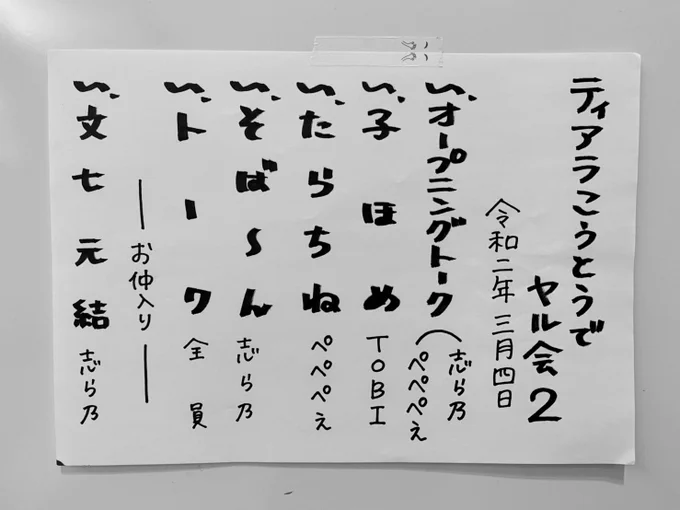 ティアラこうとうで
ヤル会2
令和二年 三月四日
一、オープニングトーク(志ら乃 ぺぺぺぇ
一、子ほめ TOBI
一、たらちね ぺぺぺぇ
一、そば〜ん 志ら乃
一、トーク 全員
――お仲入り――
一、文七元結 志ら乃